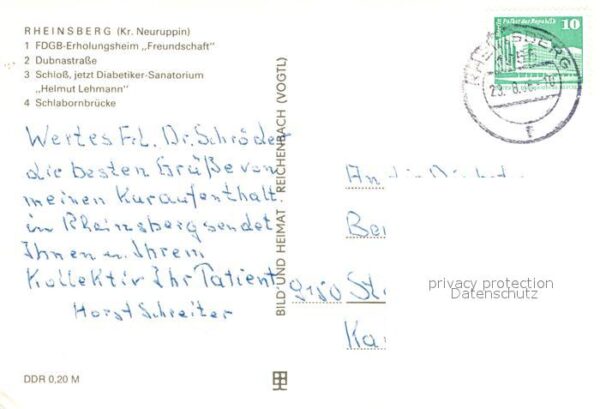 RHEINSBERG (Kr. Neuruppin)
1 FDGB-Erholungsheim „Freundschaft"
2 Dubnastraße
3 Schloß, jetzt Diabetiker-Sanatorium
„Helmut Lehmann"
4 Schlabornbrücke
Wertes Frl. Dr. Schröder
die besten Grüße von
meinen Kuraufenthalt.
in Rheinsberg sendet
Ihnen u. Ihrem
Kollektiv Ihr Patient
Horst Schreiter
DDR 0,20 M
BILD UND HEIMAT REICHENBACH (VOGTL)
Palast der Republik
10
RHEINSBERG
An
9150 St
Ka
privacy protection
Datenschutz